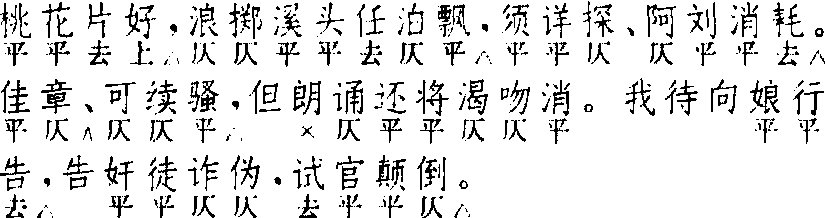 桃花片好，浪掷溪头任泊飘，须详探、阿刘消耗。
平平去上△仄仄平平去仄平△平平仄 仄平平去△
佳章、可续骚，但朗诵还将渴吻消。我待向娘行
平仄△仄仄平△ ×仄平平仄仄平 平平
告，告奸徒诈伪，试官颠倒。
去△ 平平仄仄 去平平仄△